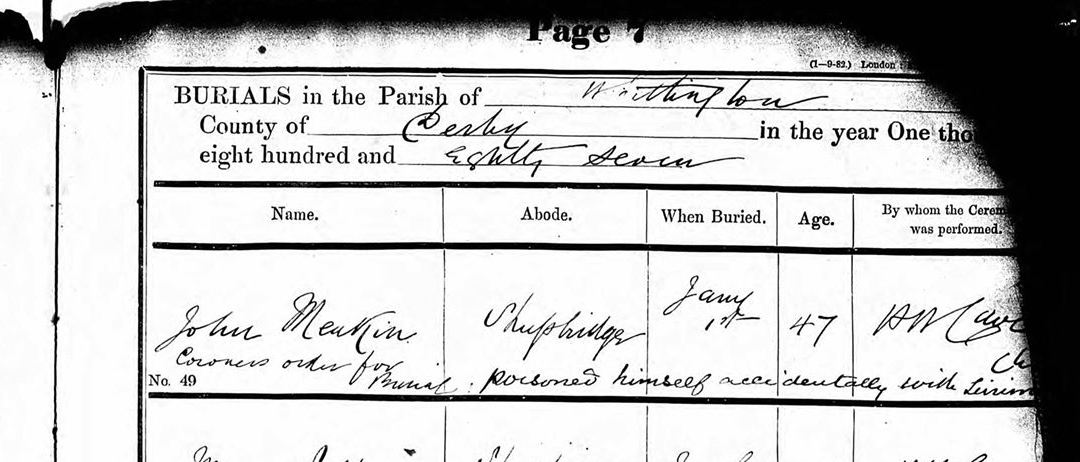 Page 7
(1—9-82.) London
BURIALS in the Parish of Whittington
County of Derby in the year One thou
eight hundred and Eighty Seven
Name. Abode. When Buried. Age. By whom the Cerem
was performed.
John Meakin Sheepbridge Jany 1st 47 H W
Coroners order for
No. 49 Burial : poisoned himself accidentally with